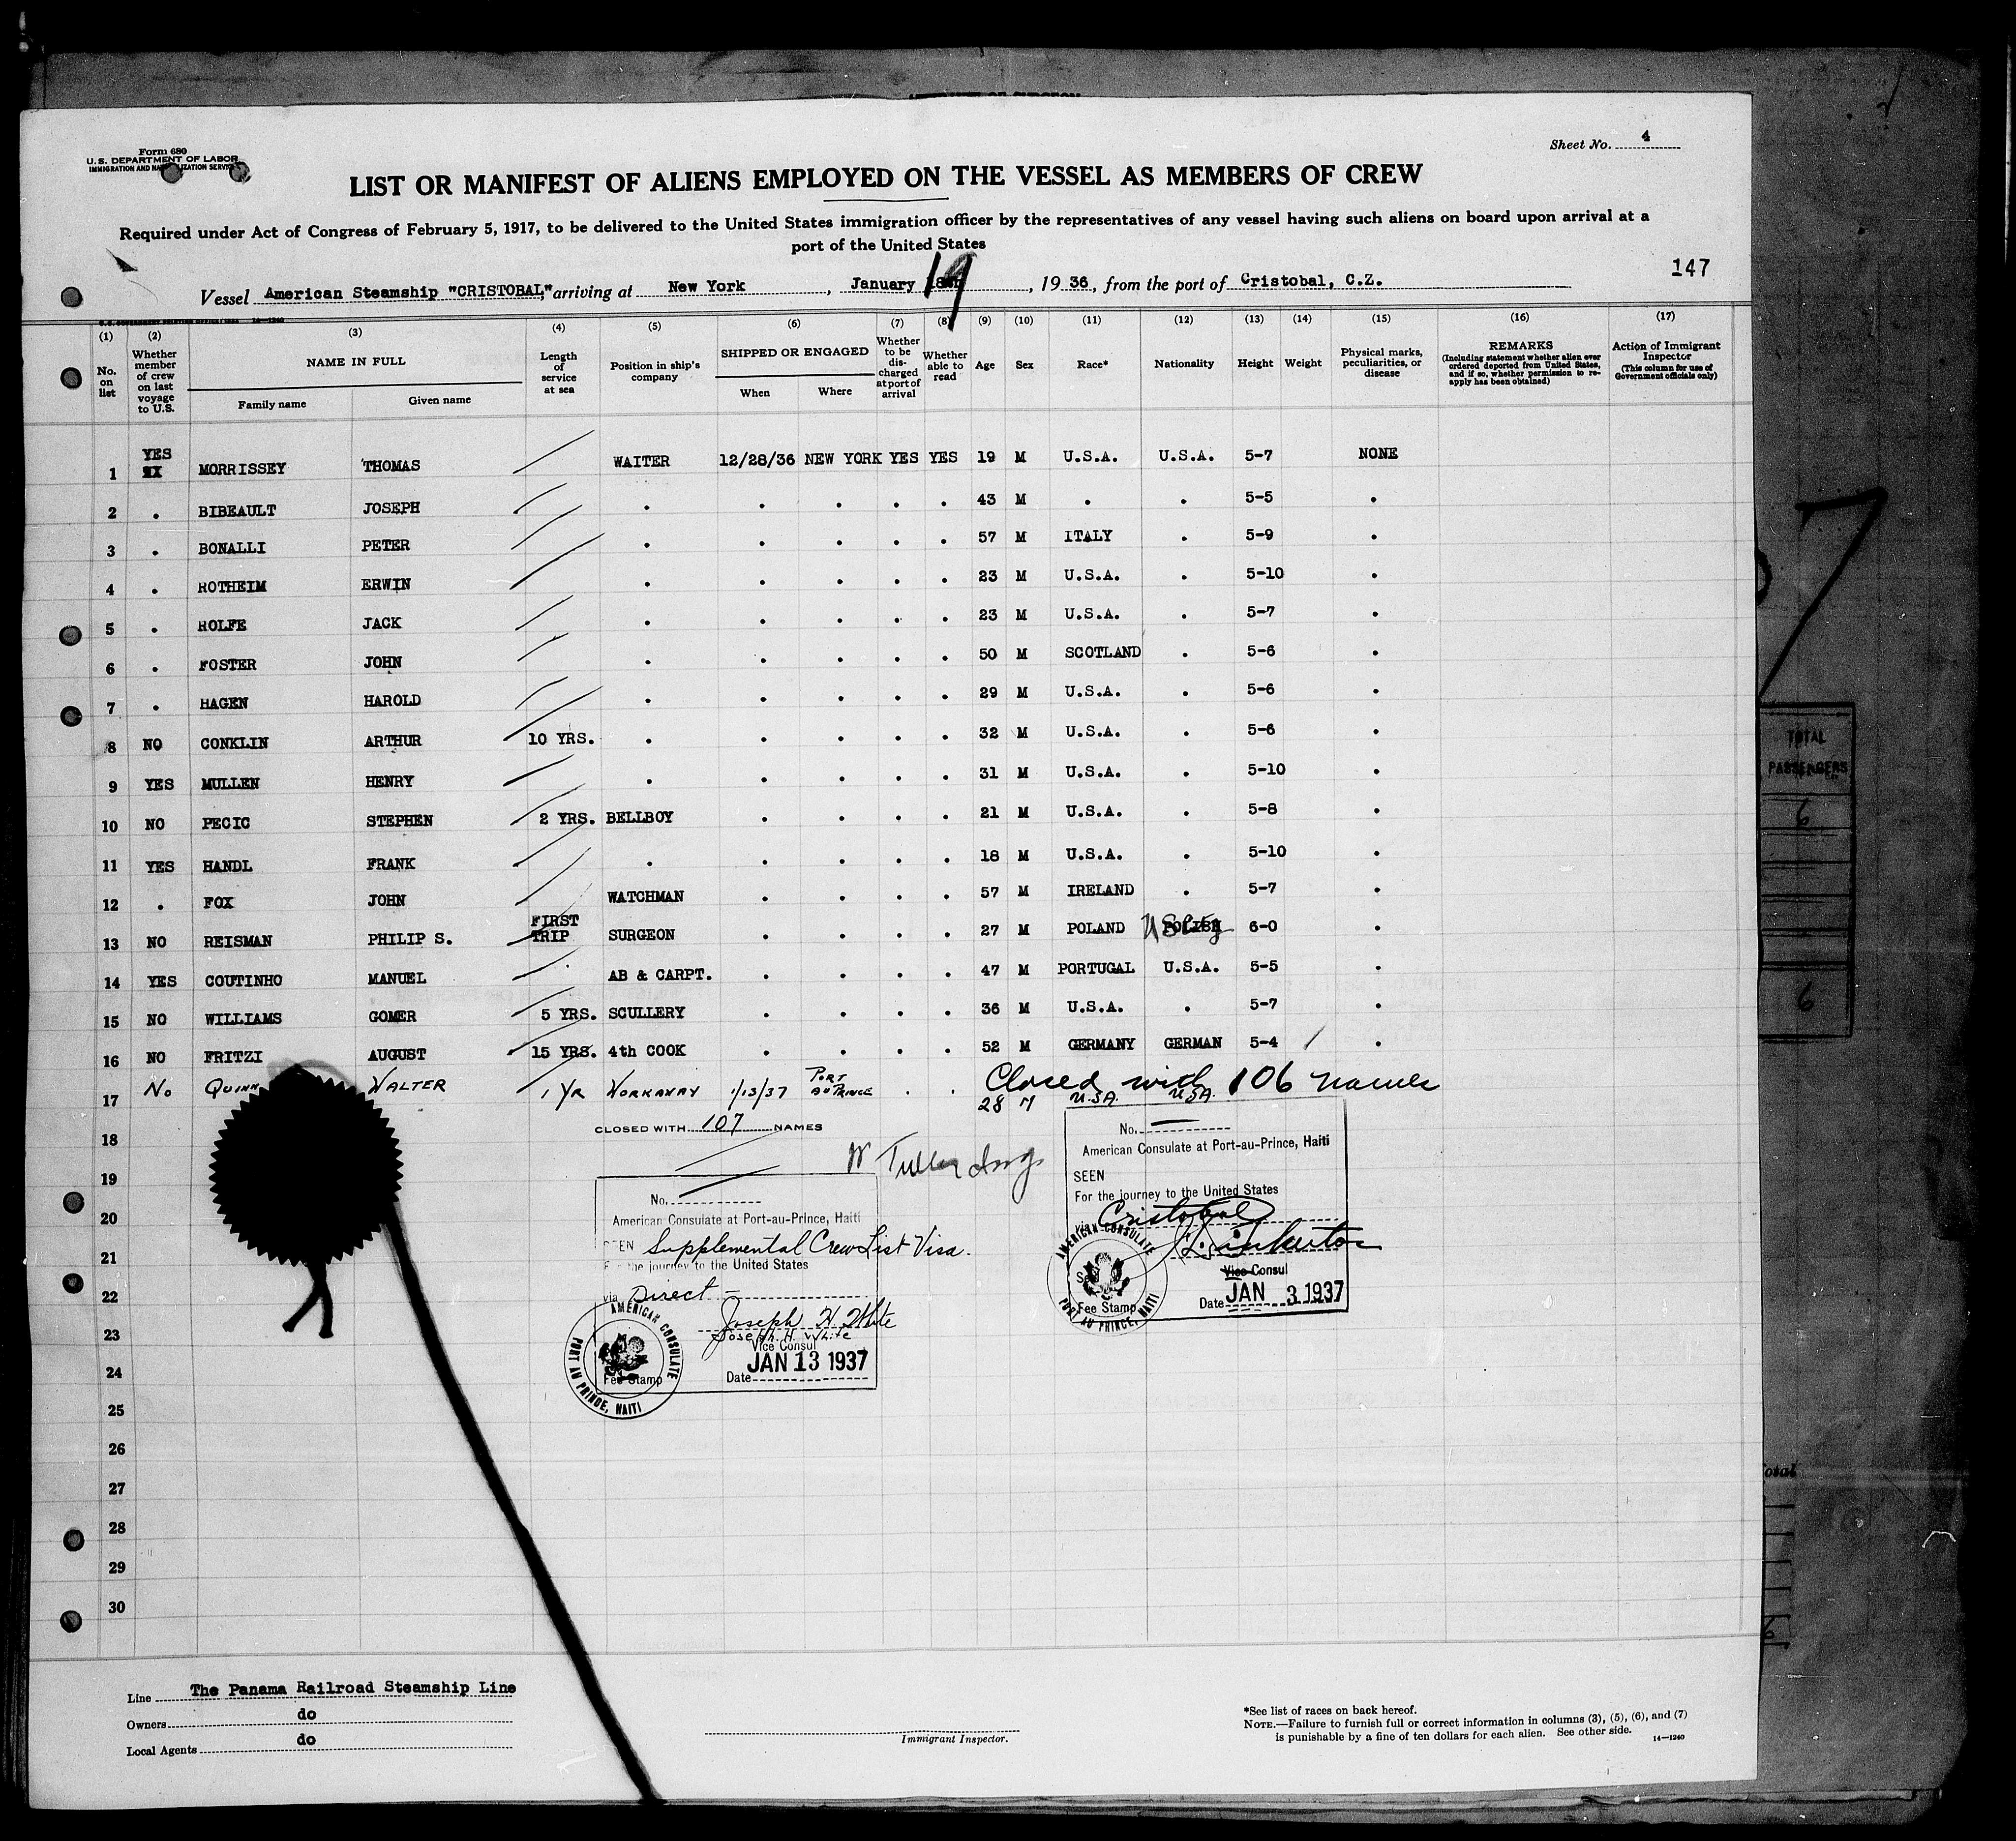 Form 680
U. S. DEPARTMENT OF LABOR
IMMIGRATION AND NATURALIZATION SERVICE
Sheet No. 4
LIST OR MANIFEST OF ALIENS EMPLOYED ON THE VESSEL AS MEMBERS OF CREW
Required under Act of Congress of February 5, 1917, to be delivered to the United States immigration officer by the representatives of any vessel having such aliens on board upon arrival at a
port of the United States
147
Vessel American Steamship "CRISTOBAL," arriving at New York, January 19, 1936, from the port of Cristobal, C.Z.
(1) (2) (3) (4) (5) (6) (7) (8) (9) (10) (11) (12) (13) (14) (15) (16) (17)
No. on list
Whether member of crew on last voyage to U.S.
NAME IN FULL
Family name Given name
Length of service at sea
Position in ship's company
SHIPPED OR ENGAGED
When Where
Whether to be discharged at port of arrival
Whether able to read
Age
Sex
Race*
Nationality
Height
Weight
Physical marks, peculiarities, or disease
REMARKS
(Including statement whether alien ever ordered deported from United States, and if so, whether permission to reapply has been obtained)
Action of Immigrant Inspector
(This column for use of Government officials only)
1 YES MORRISSEY THOMAS WAITER 12/28/36 NEW YORK YES YES 19 M U.S.A. U.S.A. 5-7 NONE
2 . BIBEAULT JOSEPH . . . . . 43 M . . 5-5 .
3 . BONALLI PETER . . . . . 57 M ITALY . 5-9 .
4 . ROTHEIM ERWIN . . . . . 23 M U.S.A. . 5-10 .
5 . ROLFE JACK . . . . . 23 M U.S.A. . 5-7 .
6 . FOSTER JOHN . . . . . 50 M SCOTLAND . 5-6 .
7 . HAGEN HAROLD . . . . . 29 M U.S.A. . 5-6 .
8 NO CONKLIN ARTHUR 10 YRS. . . . . . 32 M U.S.A. . 5-6 .
9 YES MULLEN HENRY . . . . . 31 M U.S.A. . 5-10 .
10 NO PECIC STEPHEN 2 YRS. BELLBOY . . . . 21 M U.S.A. . 5-8 .
11 YES HANDL FRANK . . . . . 18 M U.S.A. . 5-10 .
12 . FOX JOHN WATCHMAN . . . . 57 M IRELAND . 5-7 .
13 NO REISMAN PHILIP S. FIRST TRIP SURGEON . . . . 27 M POLAND POLISH 6-0 .
14 YES COUTINHO MANUEL AB & CARPT. . . . . 47 M PORTUGAL U.S.A. 5-5 .
15 NO WILLIAMS GOMER 5 YRS. SCULLERY . . . . 36 M U.S.A. . 5-7 .
16 NO FRITZI AUGUST 15 YRS. 4th COOK . . . . 52 M GERMANY GERMAN 5-4 / .
Closed with 106 names
17 No QUINN WALTER 1 YR WORKAWAY 1/13/37 PORT AU PRINCE . . 28 M U.S.A. U.S.A.
CLOSED WITH 107 NAMES
18
19
20
21
22
23
24
25
26
27
28
29
30
No.
American Consulate at Port-au-Prince, Haiti
SEEN Supplemental Crew List Visa.
For the journey to the United States
via Direct -
Joseph H. White
Joseph H. White
Vice Consul
JAN 13 1937
Date
Fee Stamp
AMERICAN CONSULATE
PORT AU PRINCE, HAITI
No.
American Consulate at Port-au-Prince, Haiti
SEEN
For the journey to the United States
via Cristobal
Vice Consul
Date JAN 3 1937
Fee Stamp
AMERICAN CONSULATE
PORT AU PRINCE, HAITI
Line The Panama Railroad Steamship Line
Owners do
Local Agents do
Immigrant Inspector.
*See list of races on back hereof.
NOTE.—Failure to furnish full or correct information in columns (3), (5), (6), and (7)
is punishable by a fine of ten dollars for each alien. See other side.
14—1240
TOTAL
PASSENGERS
6
6